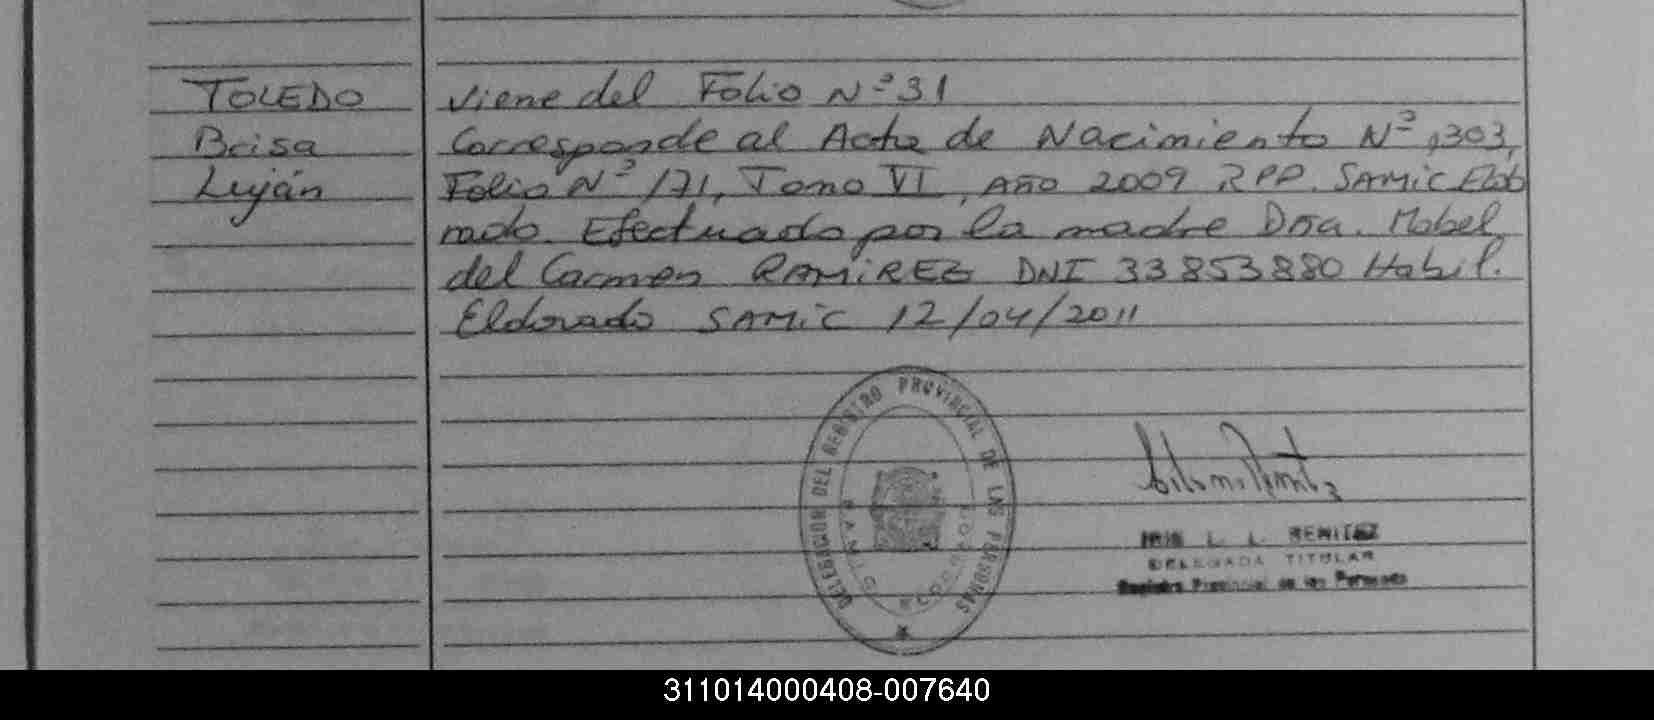 TOLEDO
Brisa
Luján
Viene del Folio Nº 31
Corresponde al Acta de Nacimiento Nº 1303,
Folio Nº 171, Tomo VI, Año 2009 RPP. SAMiC Eldo
rado. Efectuado por la madre Dña. Mabel
del Carmen RAMiREZ DNI 33853880 Habil.
Eldorado SAMiC 12/04/2011
DELEGACION DEL REGISTRO PROVINCIAL DE LAS PERSONAS
SAMIC
ELDORADO
IRIS L. L. BENITEZ
DELEGADA TITULAR
Registro Provincial de las Personas
311014000408-007640